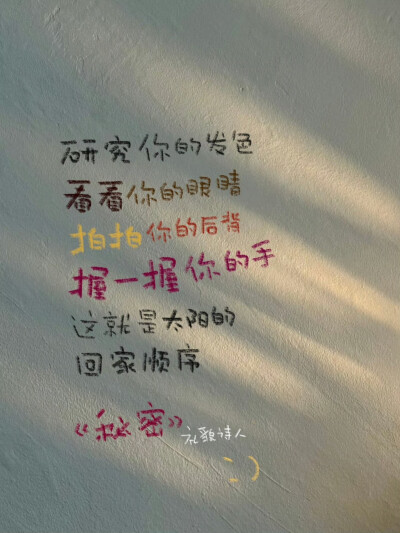 研究你的发色
看看你的眼睛
拍拍你的后背
握一握你的手
这就是太阳的
回家顺序
《秘密》 礼歌诗人
:)